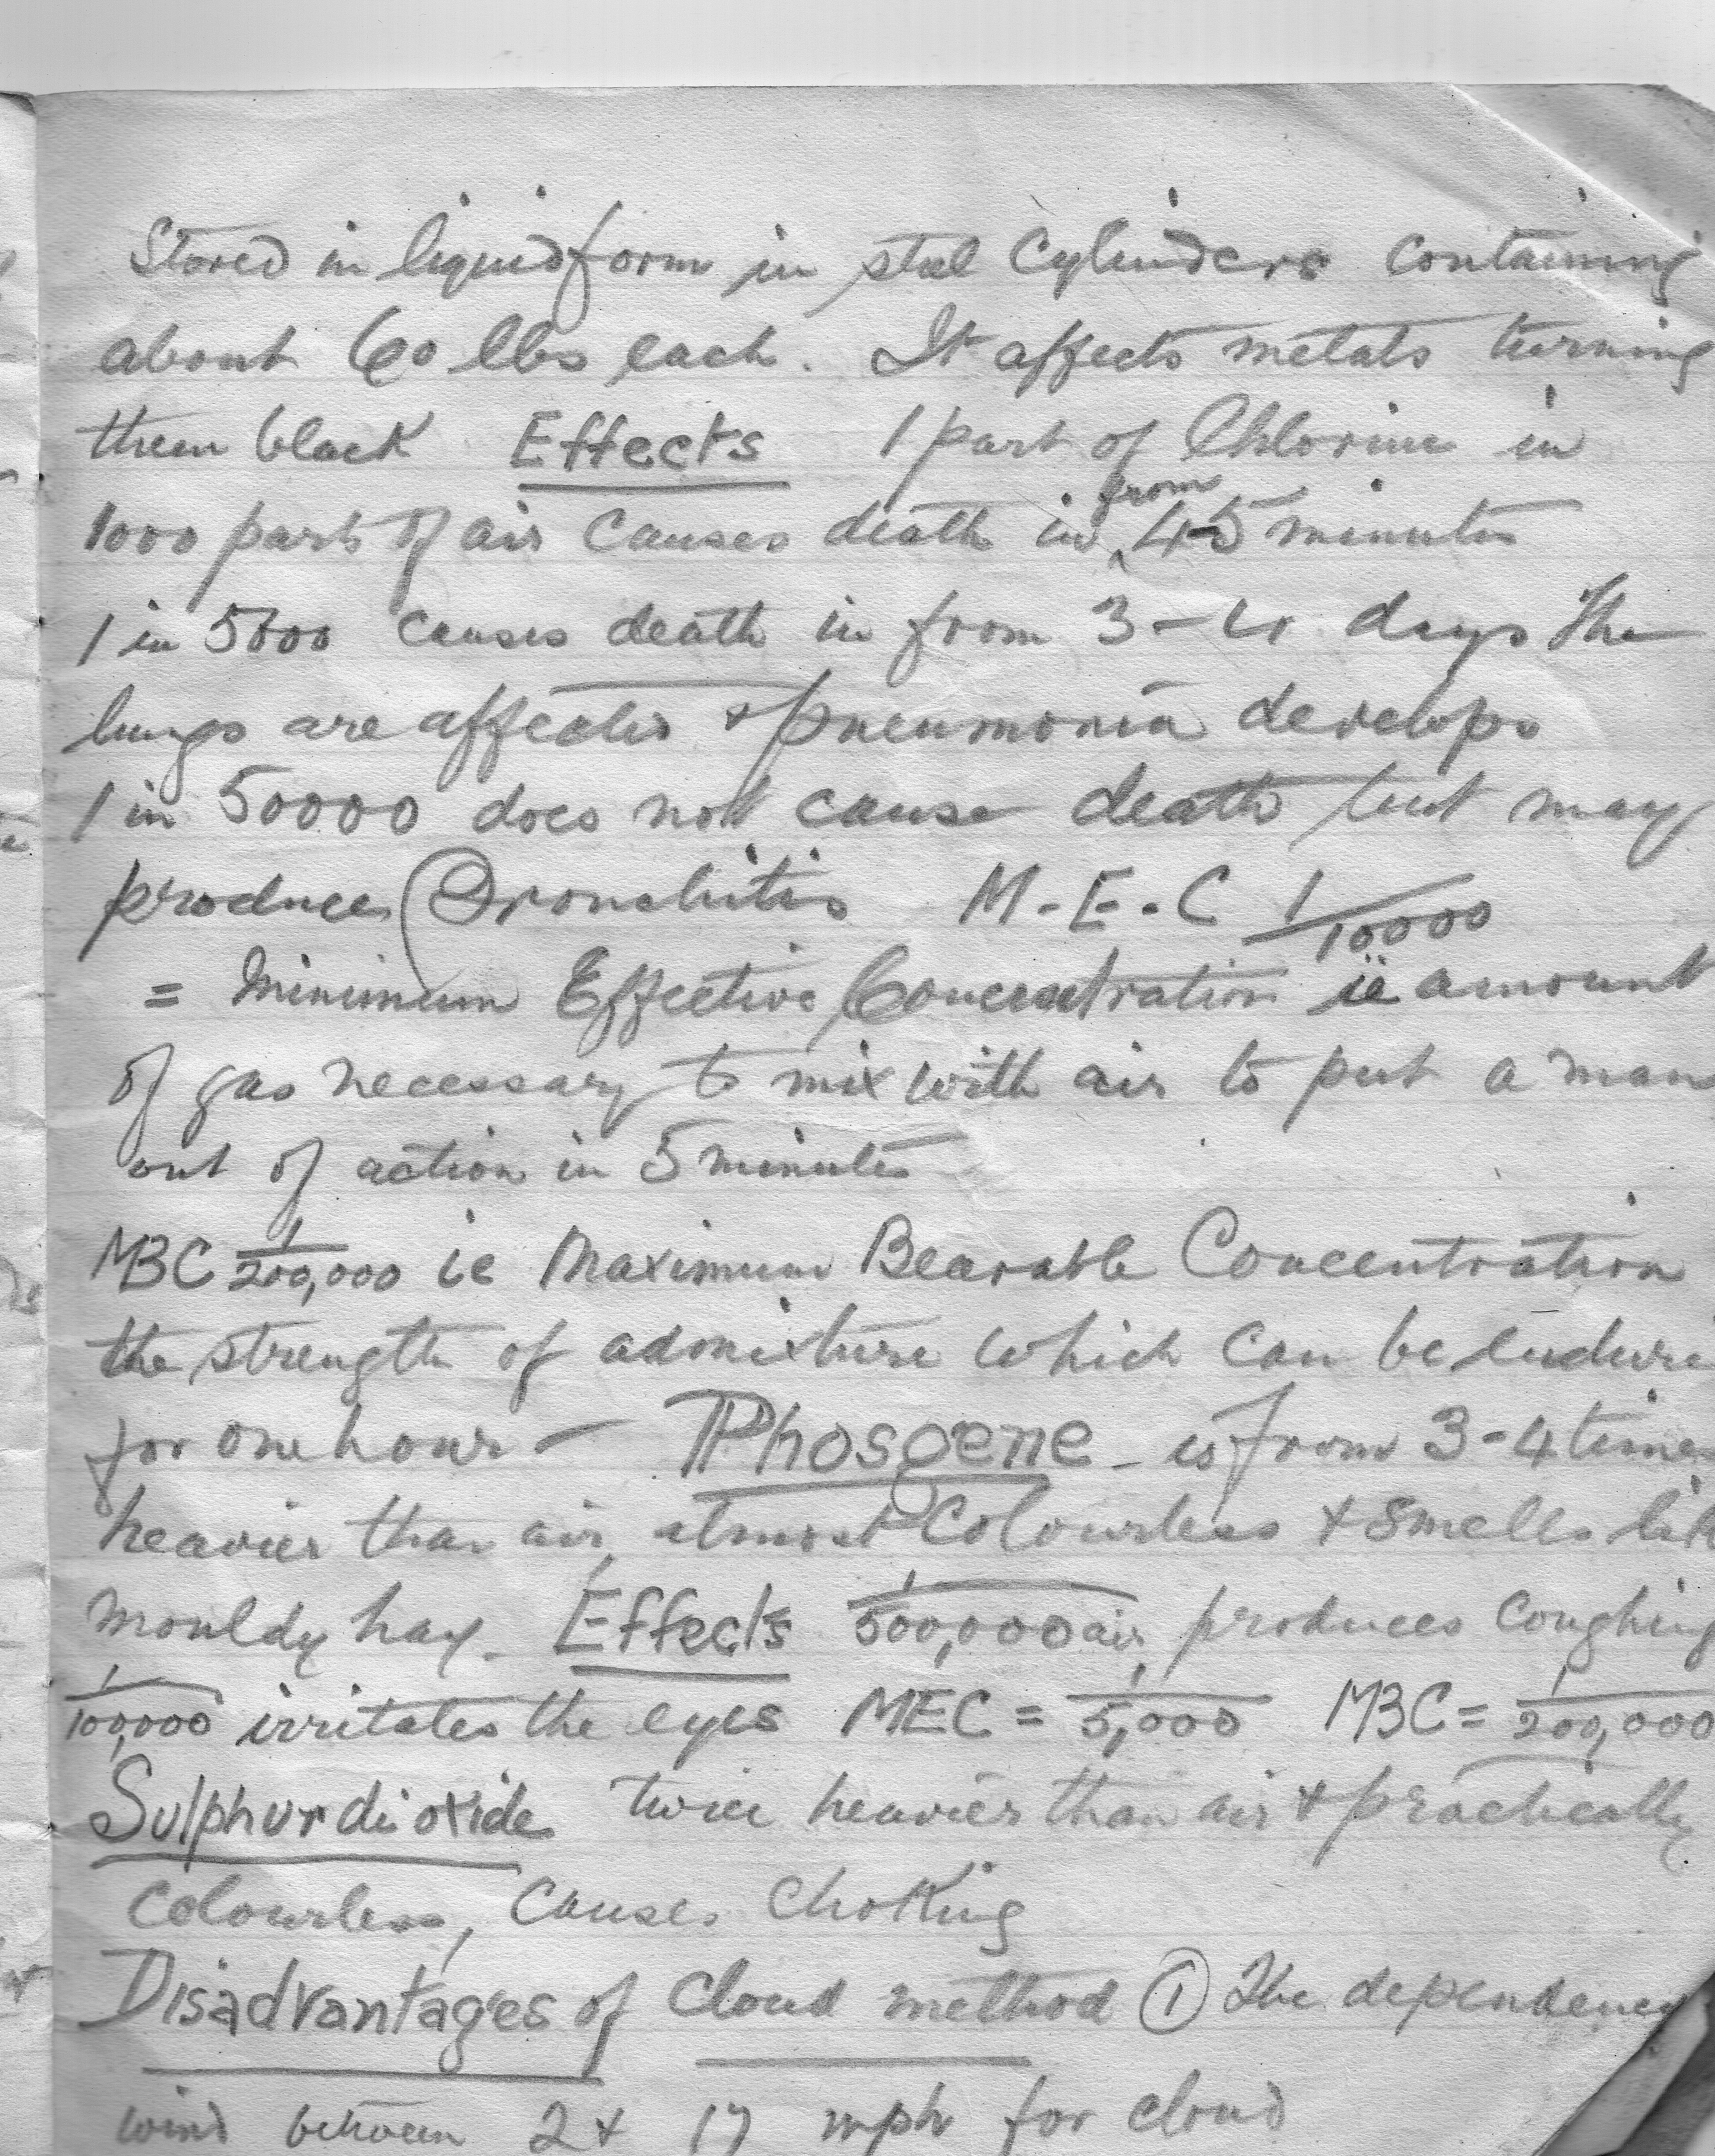 Stored in liquid form in steel Cylinders containing
about 60 lbs each. It affects metals turning
them black Effects 1 part of Chlorine in
1000 parts of air causes death in from 4-5 minutes
1 in 5000 causes death in from 3-4 days The
lungs are affected & pneumonia develops
1 in 50000 does not cause death but may
produce Bronchitis M.E.C 1/10000
= Minimum Effective Concentration ie amount
of gas necessary to mix with air to put a man
out of action in 5 minutes
MBC 1/200,000 ie Maximum Bearable Concentration
the strength of admixture which can be endure
for one hour – Phosgene – is from 3-4 times
heavier than air, almost Colourless & smells like
mouldy hay. Effects 1/500,000 air produces coughing
1/100,000 irritates the eyes MEC = 1/5,000 MBC = 1/200,000
Sulphur dioxide twice heavier than air & practically
Colourless, causes choking
Disadvantages of Cloud method ① The dependency
wind between 2 & 17 mph for cloud